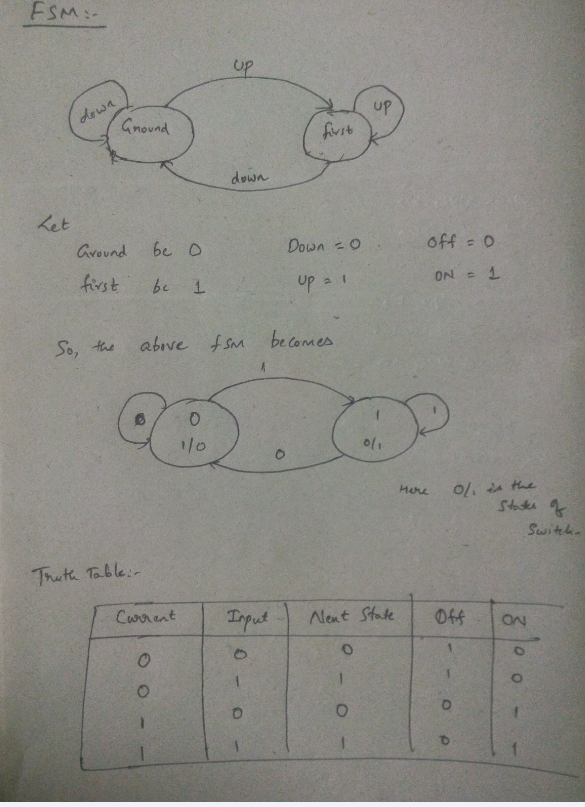 FSM:-
up
down
Ground
first
up
down
Let
Ground be 0 Down = 0 Off = 0
first be 1 Up = 1 ON = 1
So, the above fsm becomes
1
0 0 1 1
1/0 0/1
0
Here 0/1 is the
States of
Switch.
Truth Table:-
Current Input Next State Off ON
0 0 0 1 0
0 1 1 1 0
1 0 0 0 1
1 1 1 0 1